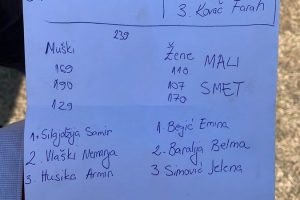 3. Kovač Farah
239
Muški
169
190
129
Žene
110
107
170
MALI
SMET
1. Silajdžija Samir
2. Vlaški Nemanja
3. Husika Armin
1. Bejić Emina
2. Baralija Belma
3 Simović Jelena